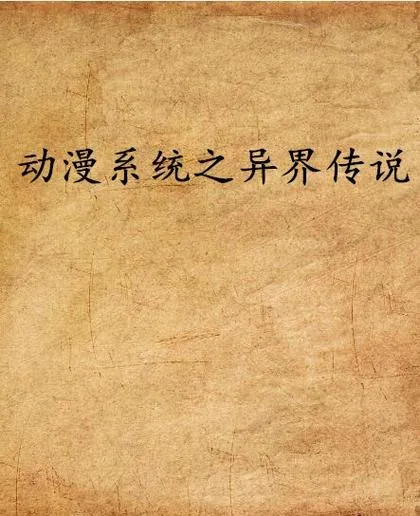 动漫系统之异界传说